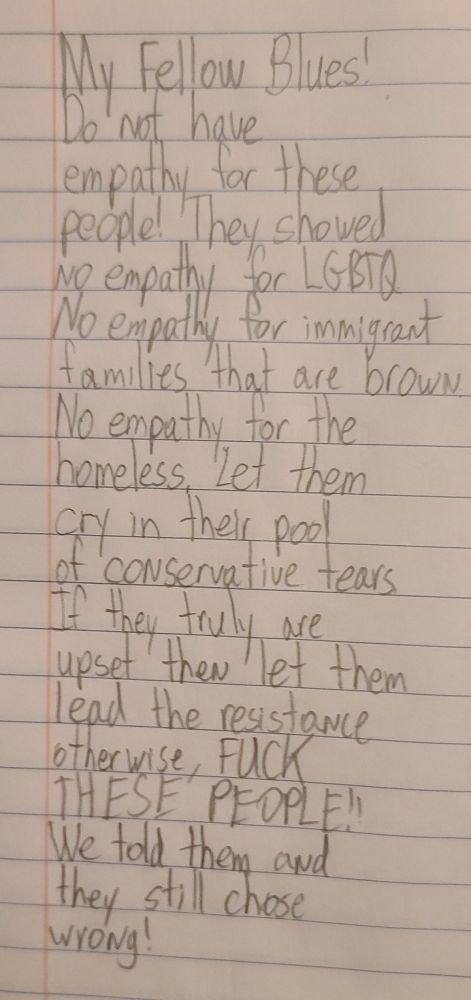 My Fellow Blues!
Do not have
empathy for these
people! They showed
No empathy for LGBTQ
No empathy for immigrant
families that are brown.
No empathy for the
homeless. Let them
cry in their pool
of conservative tears
If they truly are
upset then let them
lead the resistance
otherwise, FUCK
THESE PEOPLE!!
We told them and
they still chose
wrong!